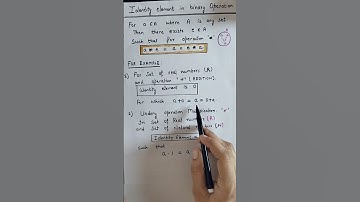 Identity element in binary Operation
For a ∈ A where A is any set
Then there exists e ∈ A
Such that for operation *
a * e = a = e * a
For Example
1) For Set of real numbers (R)
and operation "+" (ADDITION).
Identity element is 0
For which a+0 = a = 0+a
2) Under operation "×"
In set of Real number (R)
and set of natural (N)
Identity Element
Such that
a · 1 = a